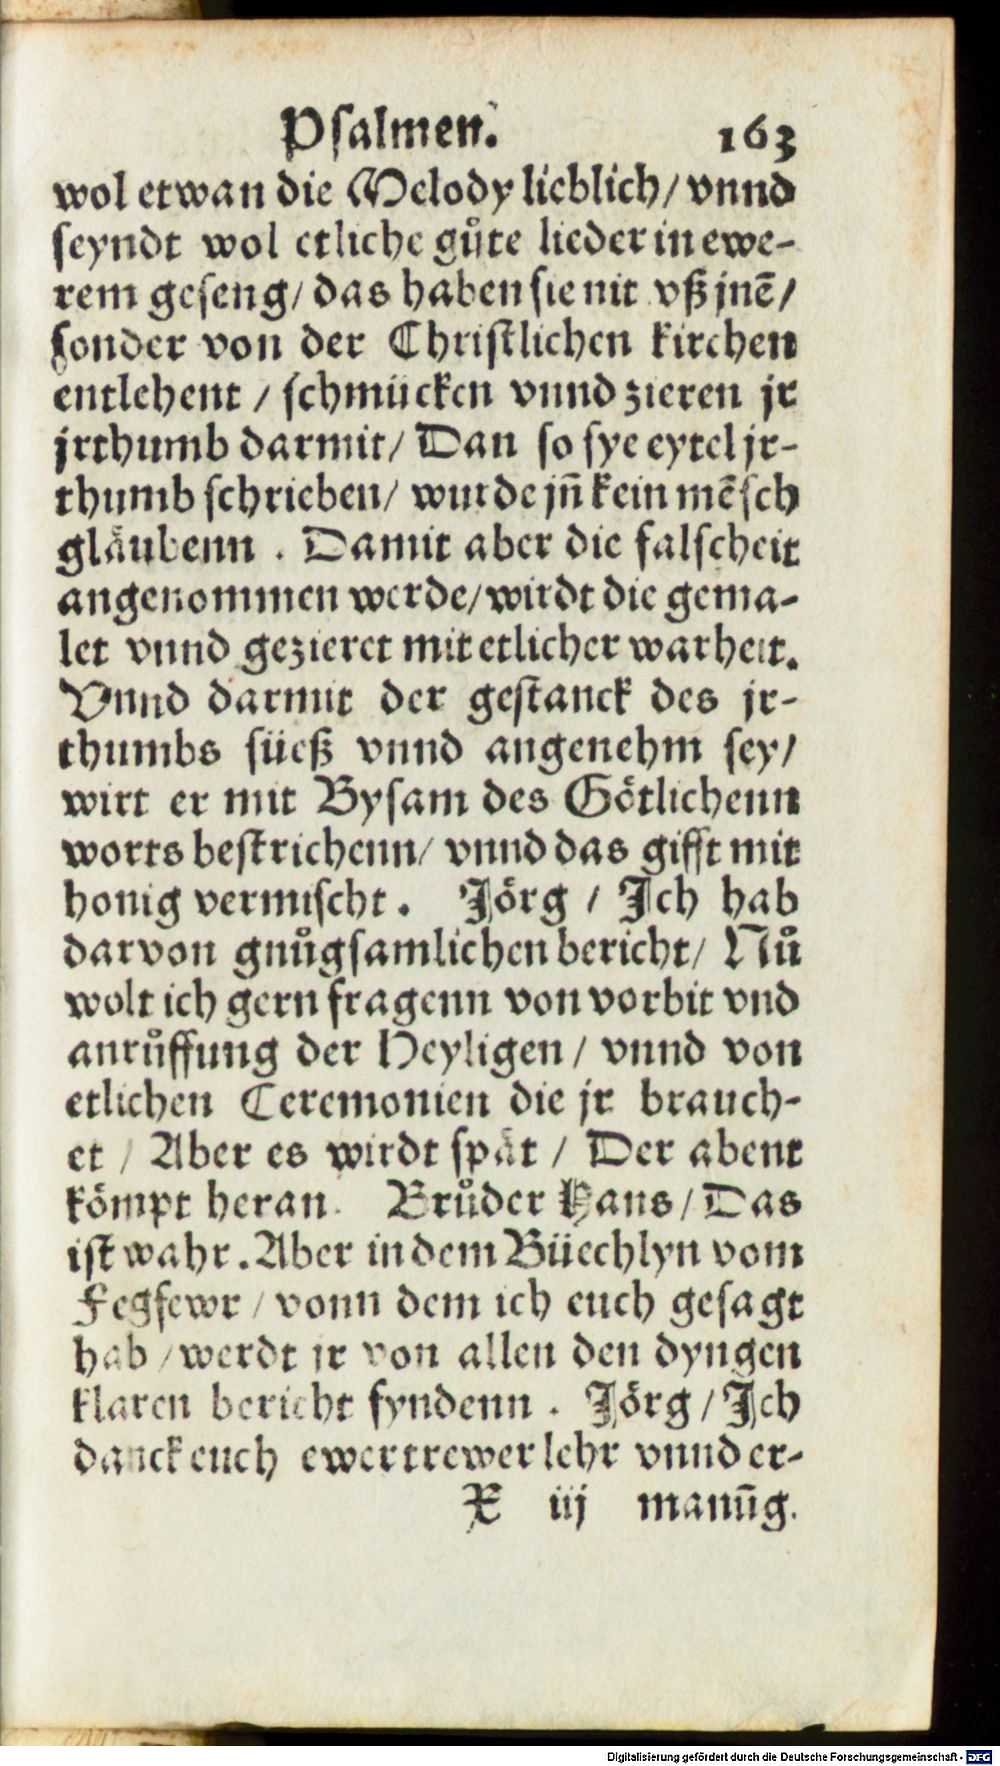 Psalmen. 163
wol etwan die Melody lieblich/ vnnd
seyndt wol etliche gůte lieder in ewe-
rem geseng/ das haben sie nit vß jnē/
sonder von der Christlichen kirchen
entlehent / schmücken vnnd zieren jr
jrthumb darmit/ Dan so sye eytel jr-
thumb schrieben/ wurde jn̄ kein mēsch
gläubenn . Damit aber die falscheit
angenommen werde/ wirdt die gema-
let vnnd gezieret mit etlicher warheit.
Vnnd darmit der gestanck des jr-
thumbs süeß vnnd angenehm sey/
wirt er mit Bysam des Götlichenn
worts bestrichenn/ vnnd das gifft mit
honig vermischt. Jörg / Ich hab
darvon gnůgsamlichen bericht/ Nů
wolt ich gern fragenn von vorbit vnd
anrůffung der Heyligen / vnnd von
etlichen Ceremonien die jr brauch-
et / Aber es wirdt spät / Der abent
kömpt heran. Brůder Hans / Das
ist wahr. Aber in dem Büechlyn vom
Fegfewr / vonn dem ich euch gesagt
hab / werdt jr von allen den dyngen
klaren bericht fyndenn . Jörg / Ich
danck euch ewer trewer lehr vnnd er-
X iij manūg.
Digitalisierung gefördert durch die Deutsche Forschungsgemeinschaft - DFG